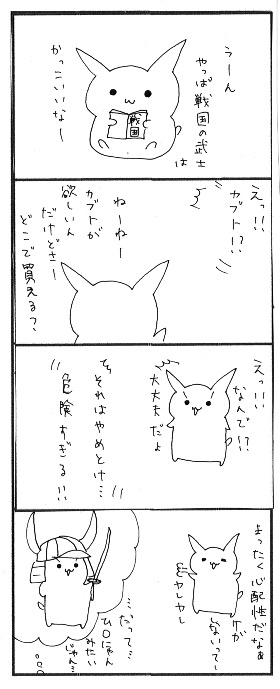 うーん
やっぱ戦国の武士
は
かっこいいなー
戦国
えっ!!
カブト!?
ねーねー
カブトが
欲しいん
だけどさー
どこで買えるっ?
えっ!!
なんで!?
大丈夫だよ
それはやめとけ…
危険すぎる!!
まったく心配性だなぁ
ケガ
しないってー
ヤレヤレ
…だって…
ひこにゃん
みたい
じゃん…